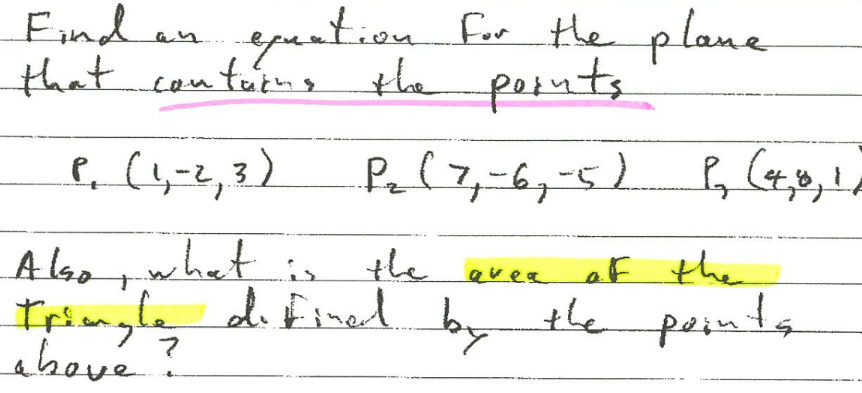 Find an equation for the plane
that contains the points
P₁ (1,-2,3) P₂ (7,-6,-5) P₃ (4,0,1)
Also, what is the area of the
triangle defined by the points
above?